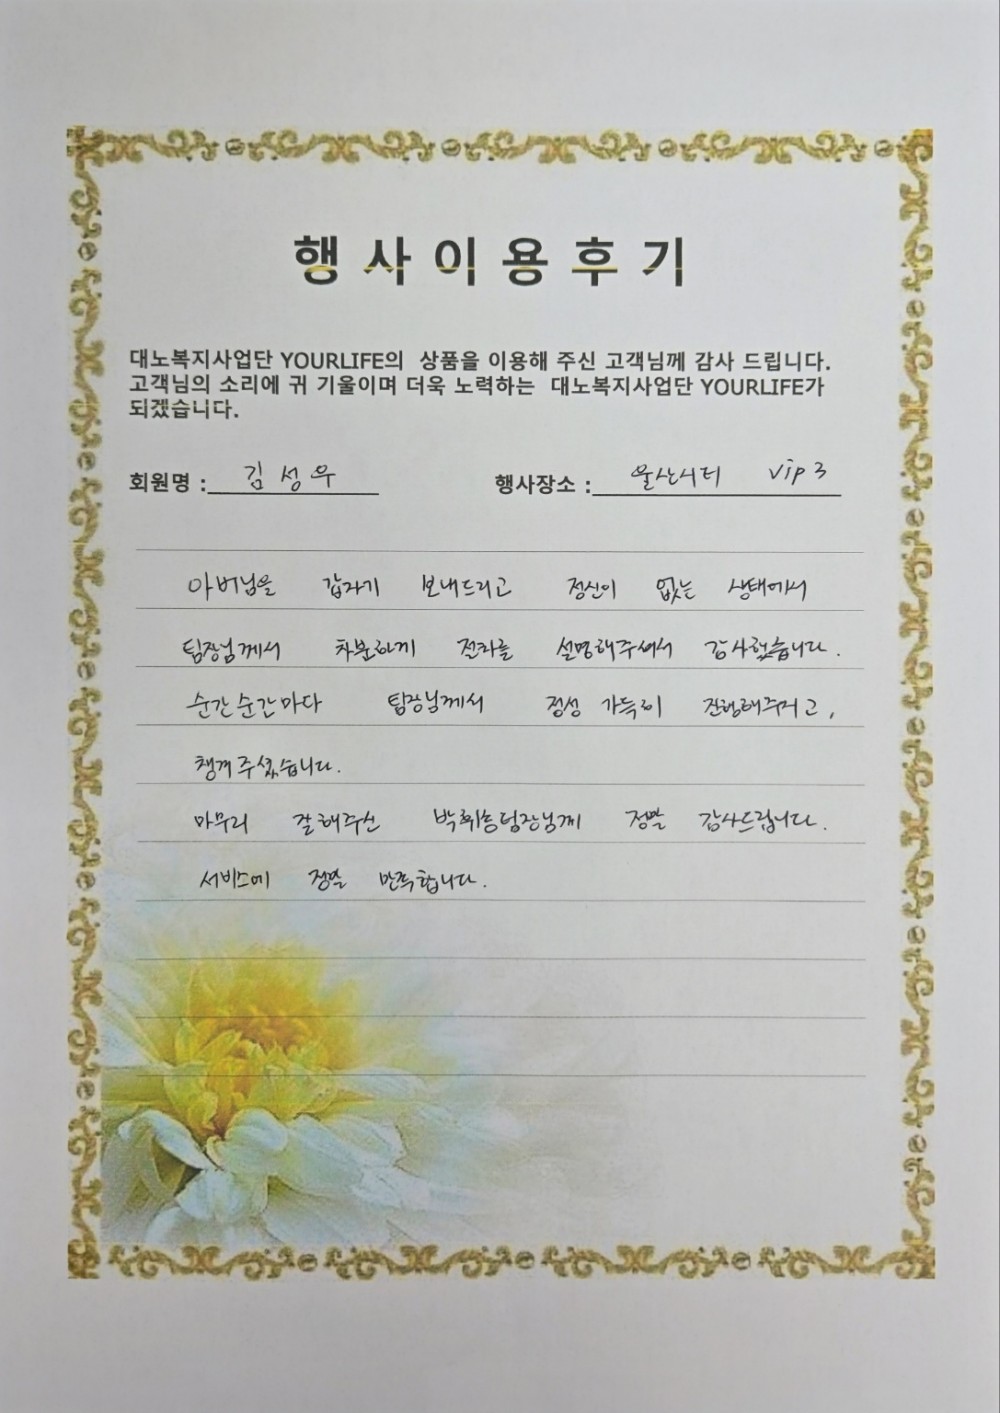 행사이용후기
대노복지사업단 YOURLIFE의 상품을 이용해 주신 고객님께 감사 드립니다.
고객님의 소리에 귀 기울이며 더욱 노력하는 대노복지사업단 YOURLIFE가
되겠습니다.
회원명 : 김성우 행사장소 : 울산시티 vip 3
아버님을 갑자기 보내드리고 정신이 없는 상태에서
팀장님께서 차분하게 절차를 설명해주셔서 감사했습니다.
순간순간마다 팀장님께서 정성 가득히 진행해주시고,
챙겨주셨습니다.
마무리 잘해주신 정말 감사드립니다.
서비스에 정말 만족합니다.